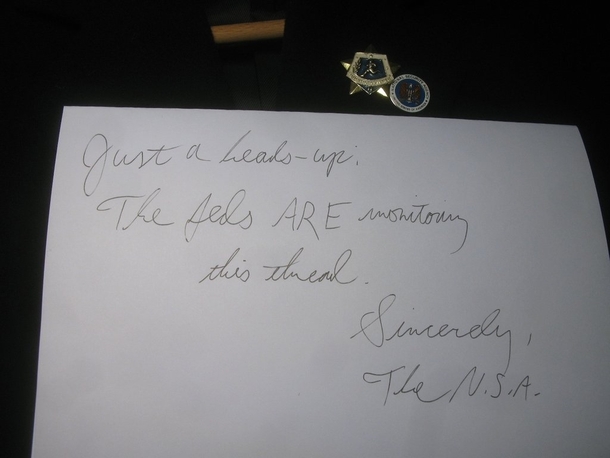 Just a heads-up.
The feds ARE monitoring
this thread.
Sincerely,
The N.S.A.